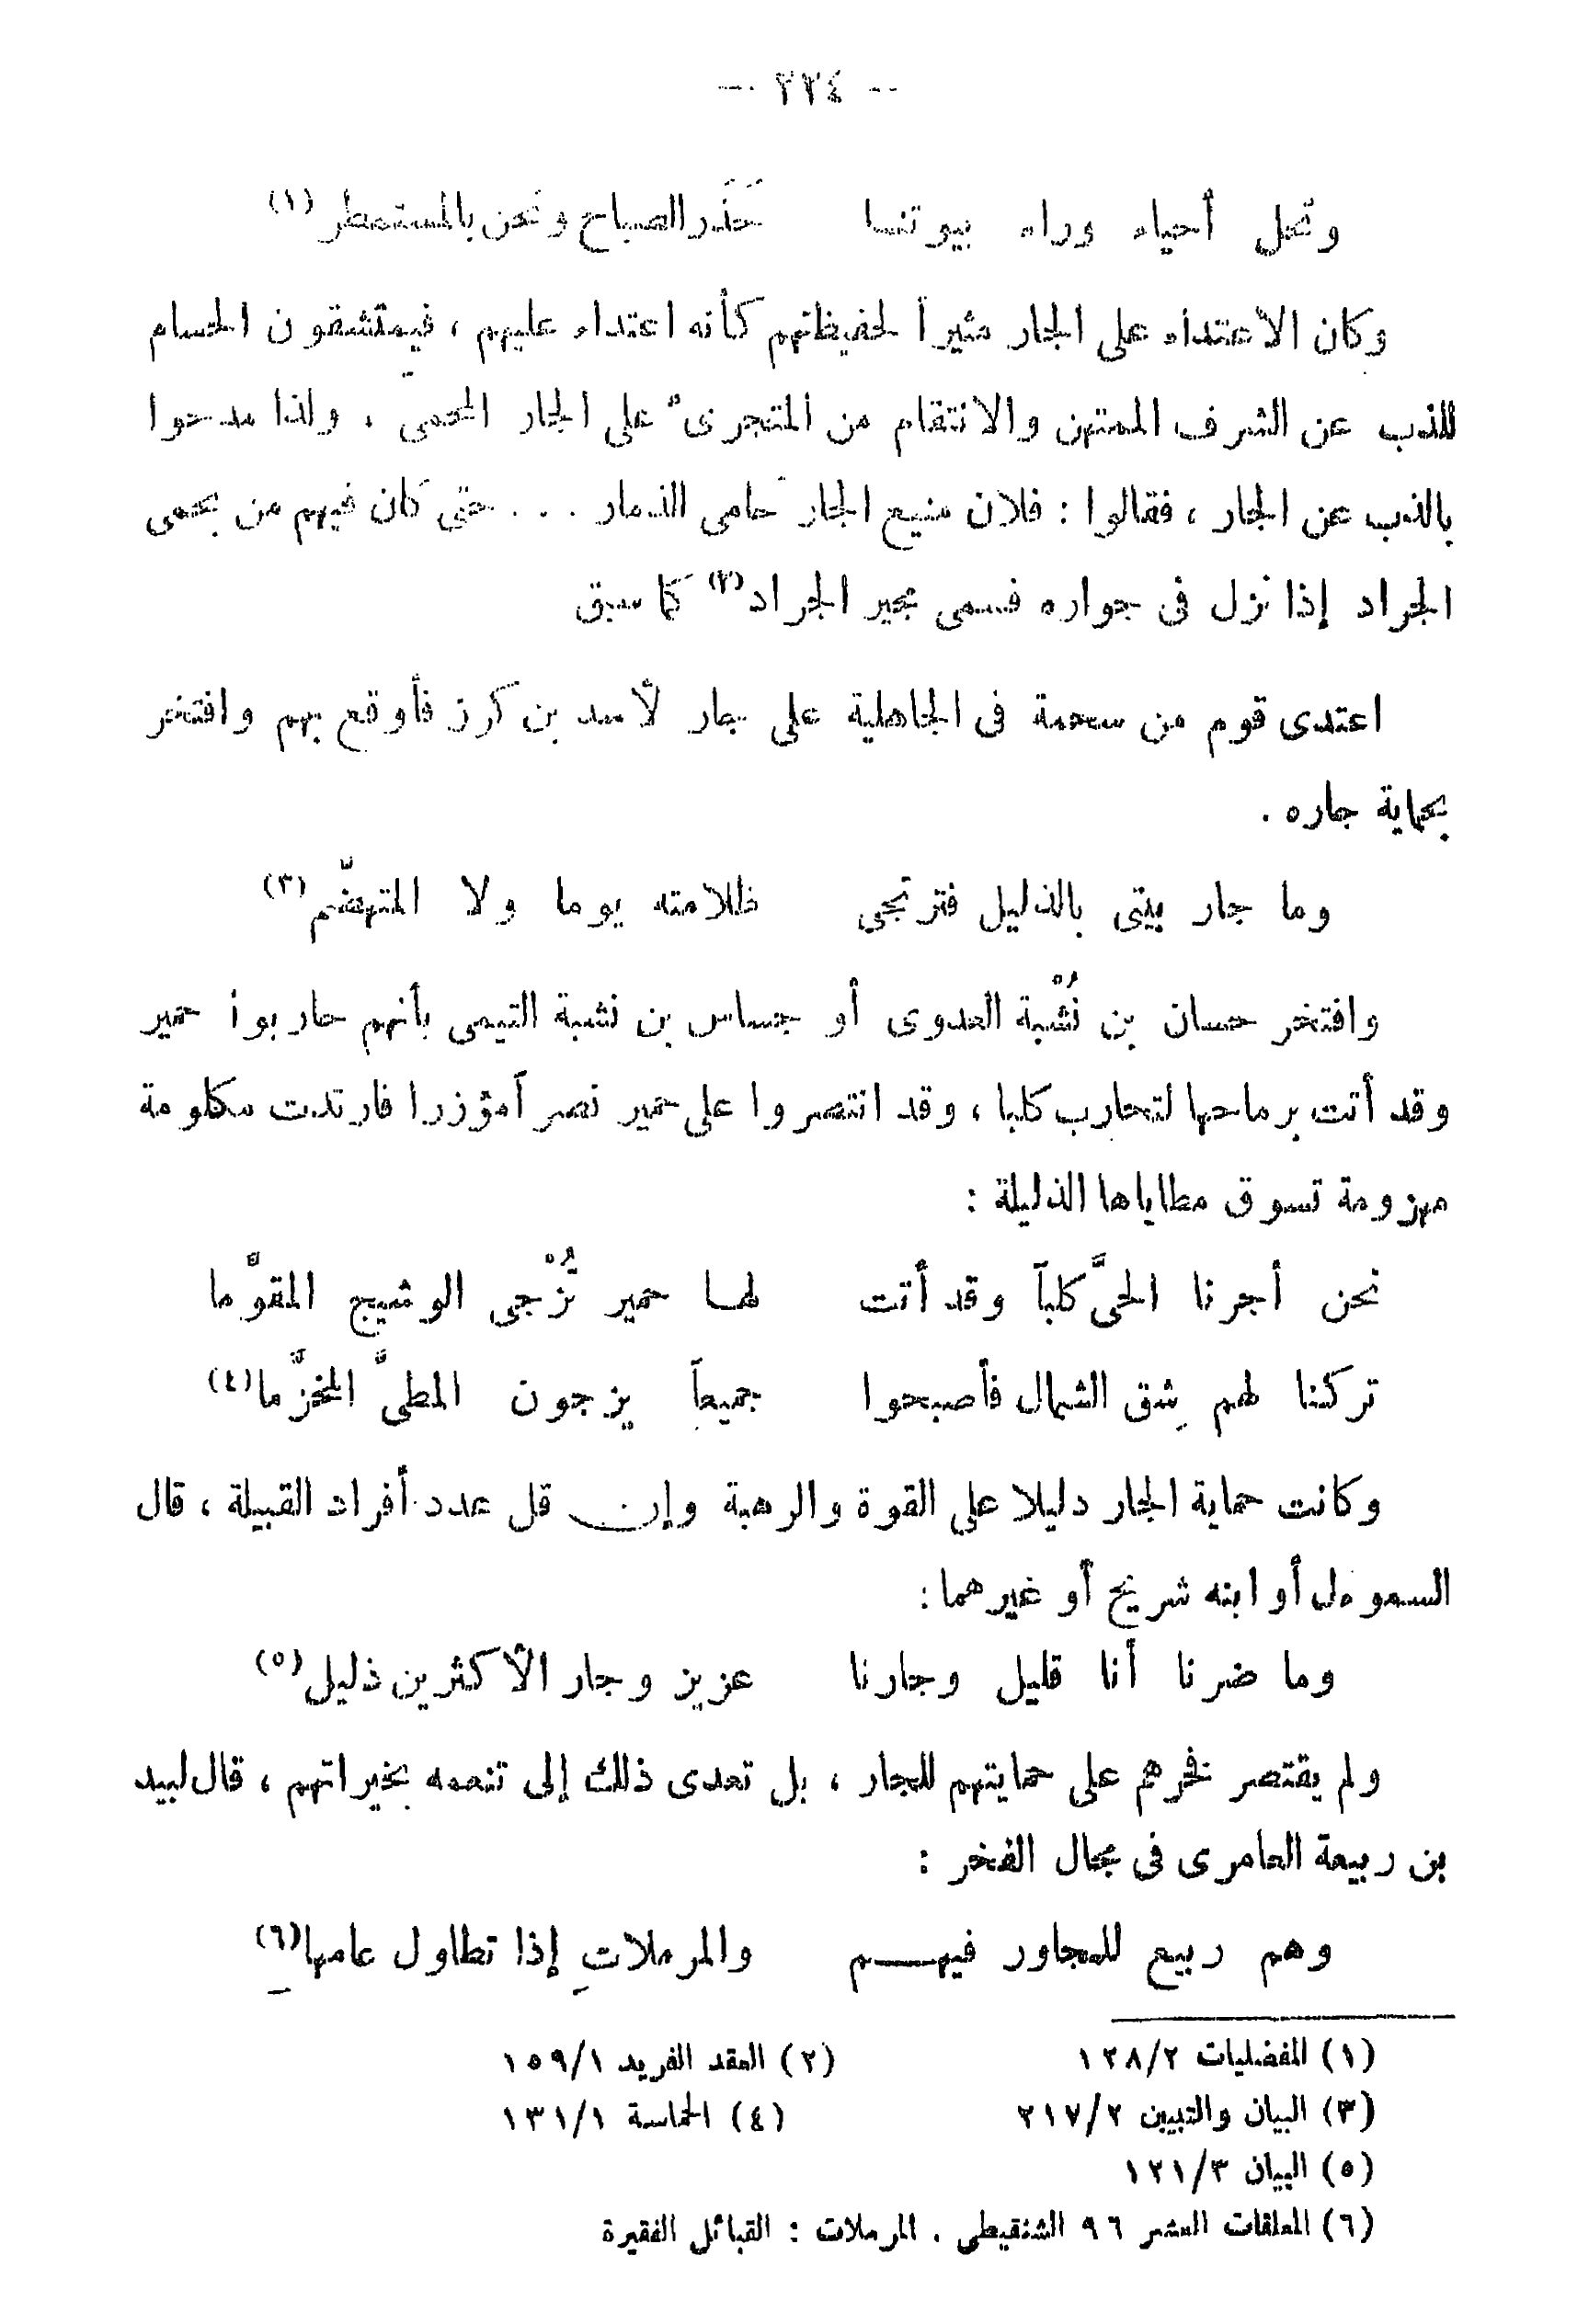 — ٢٣٤ —
وتحل أحياء وراء بيوتنا حَذَر الصباح ونحن بالمستمطر (١)
وكان الاعتداء على الجار مثيراً لحفيظاتهم كأنه اعتداء عليهم ، فيمتشقون الحسام
للذب عن الشرف الممتهن والانتقام من المتجرىء على الجار المحمى ، ولذا مدحوا
بالذب عن الجار ، فقالوا : فلان منيع الجار حامى الذمار . . . حتى كان فيهم من يحمى
الجراد إذا نزل فى جواره فسمى مجير الجراد (٢) كما سبق
اعتدى قوم من سحمة فى الجاهلية على جار لأسد بن كرز فأوقع بهم وافتخر
بحماية جاره .
وما جار بيتى بالذليل فترتجى ظلامته يوما ولا المتهضّم (٣)
وافتخر حسان بن نُشْبة العدوى أو جساس بن نشبة التيمى بأنهم حاربوا حمير
وقد أتت برماحها لتحارب كلبا ، وقد انتصروا على حمير نصر آمؤزرا فارتدت مكلومة
مهزومة تسوق مطاياها الذليلة :
نحن أجرنا الحىَّ كلباً وقد أتت لها حمير تُزْجى الوشيج المقوَّما
تركنا لهم شِق الشمال فأصبحوا جميعاً يزجون المطىَّ المخزَّما (٤)
وكانت حماية الجار دليلا على القوة والرهبة وإن قل عدد أفراد القبيلة ، قال
السموءل أو ابنه شريح أو غيرهما :
وما ضرنا أنا قليل وجارنا عزيز وجار الأكثرين ذليل (٥)
ولم يقتصر فخرهم على حمايتهم للجار ، بل تعدى ذلك إلى تنعمه بخيراتهم ، قال لبيد
بن ربيعة العامرى فى مجال الفخر :
وهم ربيع للمجاور فيهم والمرملاتِ إذا تطاول عامها (٦)
(١) المفضليات ١٢٨/٢ (٢) العقد الفريد ١٥٩/١
(٣) البيان والتبيين ٢١٧/٢ (٤) الحماسة ١٣١/١
(٥) البيان ١٢١/٣
(٦) المعلقات العشر ٩٦ الشنقيطى . المرملات : القبائل الفقيرة